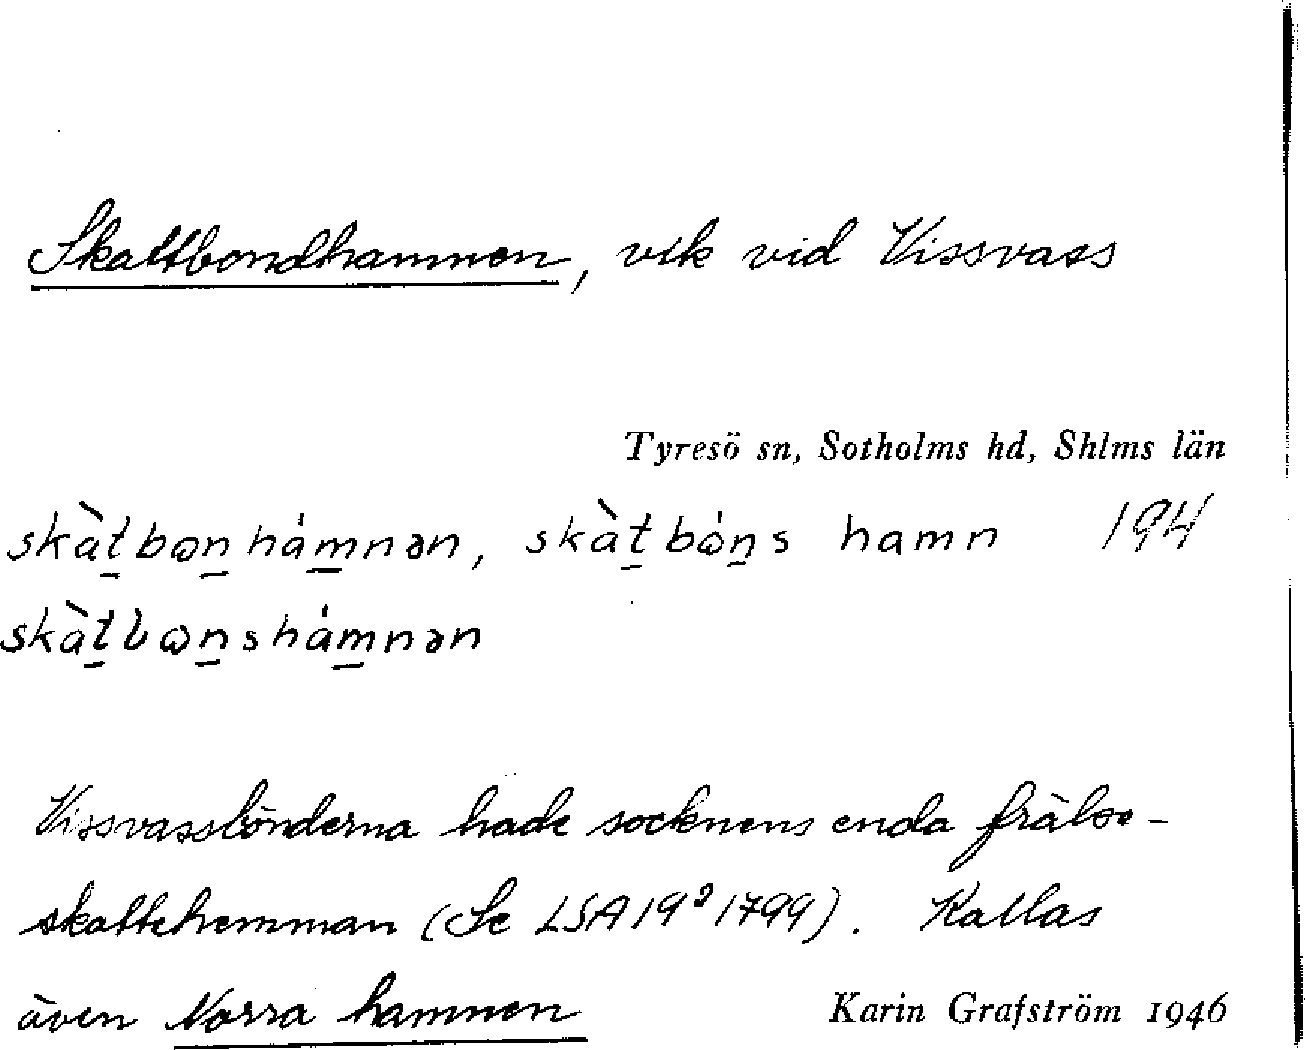 Skattbondhamnen, vik vid Vissvass
Tyresö sn, Sotholms hd, Shlms län
skàt̠bωn̠hám̠nən, skàt̠bώn̠s hamn 194
skàt̠bωn̠shám̠nən
Vissvassbönderna hade socknens enda frälse-
skattehemman (Se LSA 19² 1799). Kallas
även Norra hamnen
Karin Grafström 1946